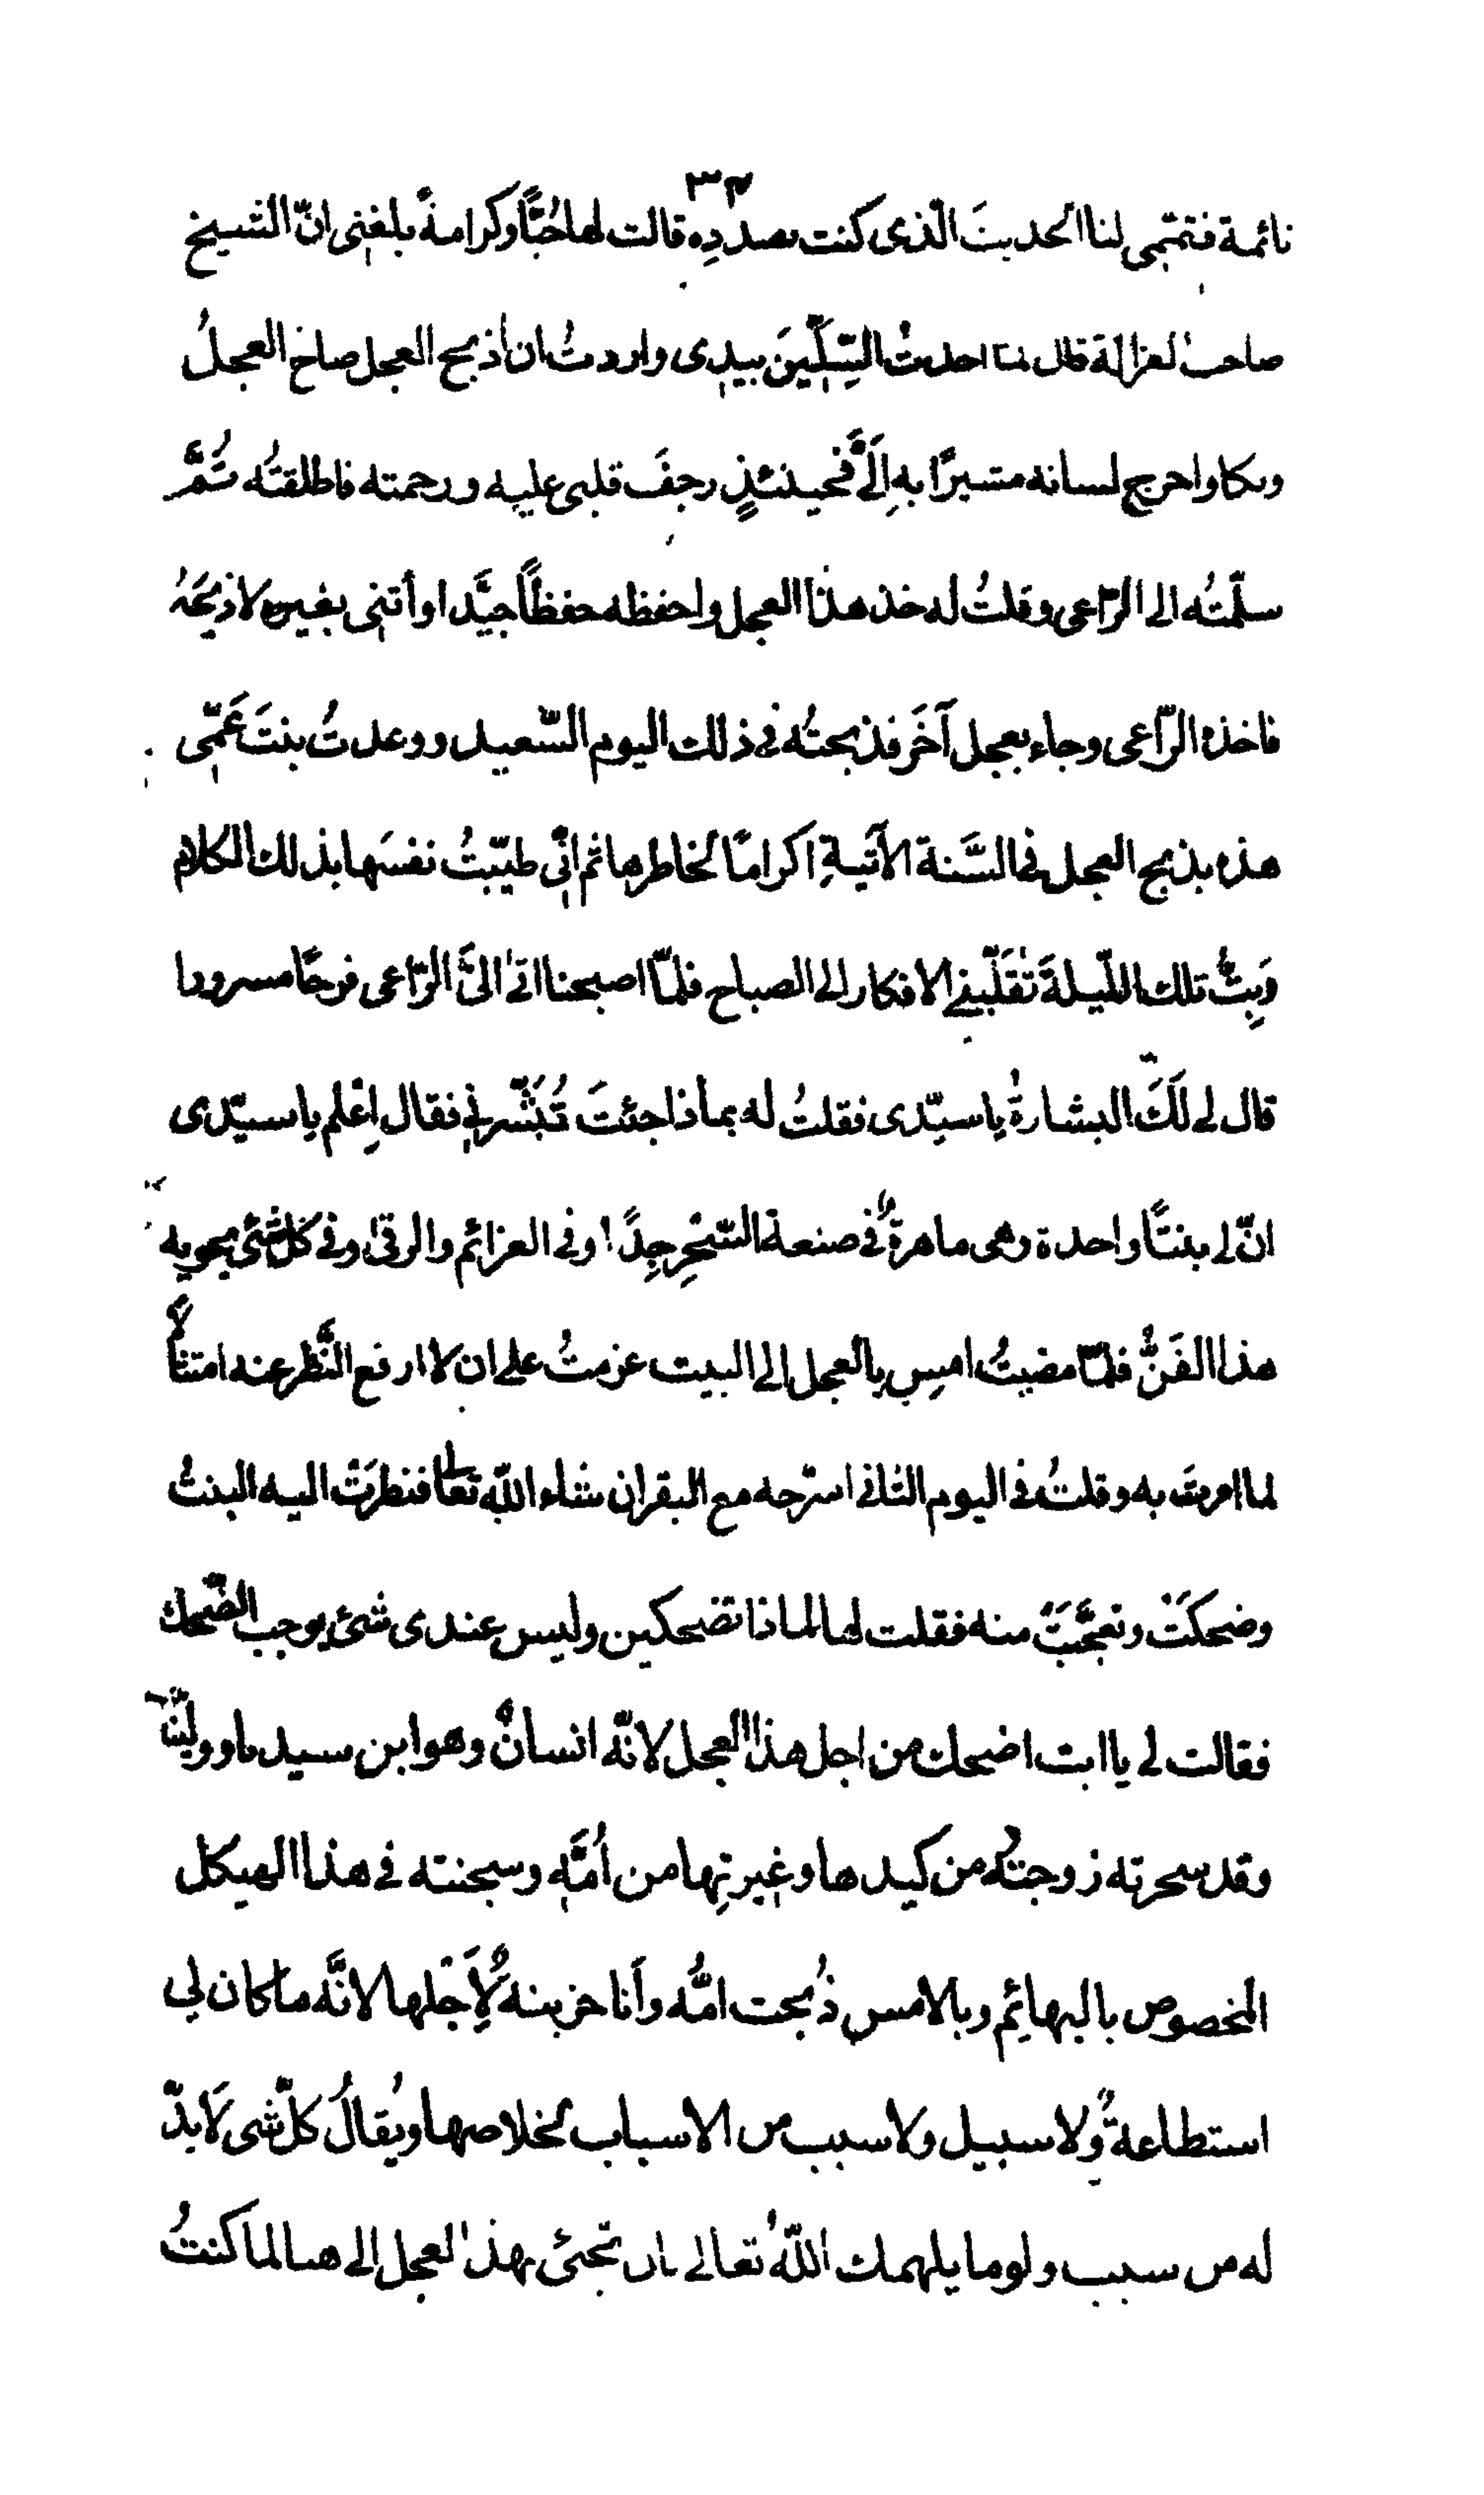 ٣٢
نائمة فتمّمى لنا الحديثَ الّذى كنت بصددِه قالت لها حُبًّا وكرامةً بلغنِى انّ الشيخ
صاحب الغزالة قال لمّا اخذتُ السِّكِّينَ بيدِى واردتُ ان أذبح العجل صاح العجلُ
وبكا واخرج لسانه مشيرًا به اِلَىَّ فحينئذٍ رجفَ قلبى عليه ورحمته فاطلقتُه ثُمَّ
سلّمتُه الى الرّاعى وقلتُ له خذ هذا العجل واحفظه حفظًا جيَّدا وأتنِى بغيره لاذبحَهُ
فاخذه الرّاعى وجاء بعجل آخَرَ فذبحتُه فى ذلك اليوم السّعيد ووعدتُ بنتَ عَمِّى
هذه بذبح العجل فى السَّنة الآتيةِ اكرامًا لخاطرها ثم اِنِّى طيّبتُ نفسَها بذلك الكلام
وَبِتُّ تلك اللّيلةَ تُقَلّبُنِى الافكار الى الصباح فلمّا اصبحنا اتى الىَّ الرّاعى فرحًا مسرورا
قال لى لَكَ البشارةُ يا سيّدى فقلتُ له بماذا جئتَ تُبَشّرنِى فقال اِعْلم يا سيّدى
انّ لى بنتًا واحدة وهى ماهرةٌ فى صنعة السّحْرِ جِدًّا وفى العزائم والرقى وفى كلّ شئ يحويه
هذا الفَنُّ فلمّا مضيتُ امسِ بالعجل الى البيت عزمتُ على ان لا ارفع النَّظر عنه امتثالًا
لما امرتَ به وقلتُ فى اليوم الثانى اسرّحه مع البقر ان شاء اللّه تعالى فنظرَتْ اليه البنتُ
وضحكَتْ وتعجَّبَتْ منه فقلت لها لماذا تضحكين وليس عندى شئ يوجب الضّحك
فقالت لى يا ابت اضحك من اجل هذا العجل لانّه انسانٌ وهو ابن سيدنا وولينّا
وقد سحرته زوجتكم من كيدها وغيرتِها من اُمّه وسجنته فى هذا الهيكل
المخصوص بالبهائم وبالامسِ ذُبحت امُّه وأنا حزينةٌ لِأَجْلها لانَّه ما كان لى
استطاعةٌ ولا سبيل ولا سبب من الاسباب لخلاصها ويُقالُ كلّ شئ لَا بدّ
له من سبب ولو ما يلهمك اللّهُ تعالى بان تجئ بهذا العجل الى هنا لما كنتُ